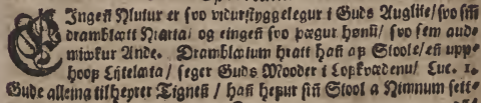 EIngeñ Hlutur er svo vidurstyggelegur i Guds Auglite/ svo sem
dramblatt Hiarta/ og eingeñ svo þægur hønū/ svo sem aud-
miwkur Ande. Dramblætum hratt hañ af Stoole/ eñ upp-
hoof Lijtelæta/ seger Guds Mooder i Lofkvædenu/ Luc. 1.
Gude alleina tilheyrer Tigneñ/ hañ hefur siñ Stool a Himnum sett-